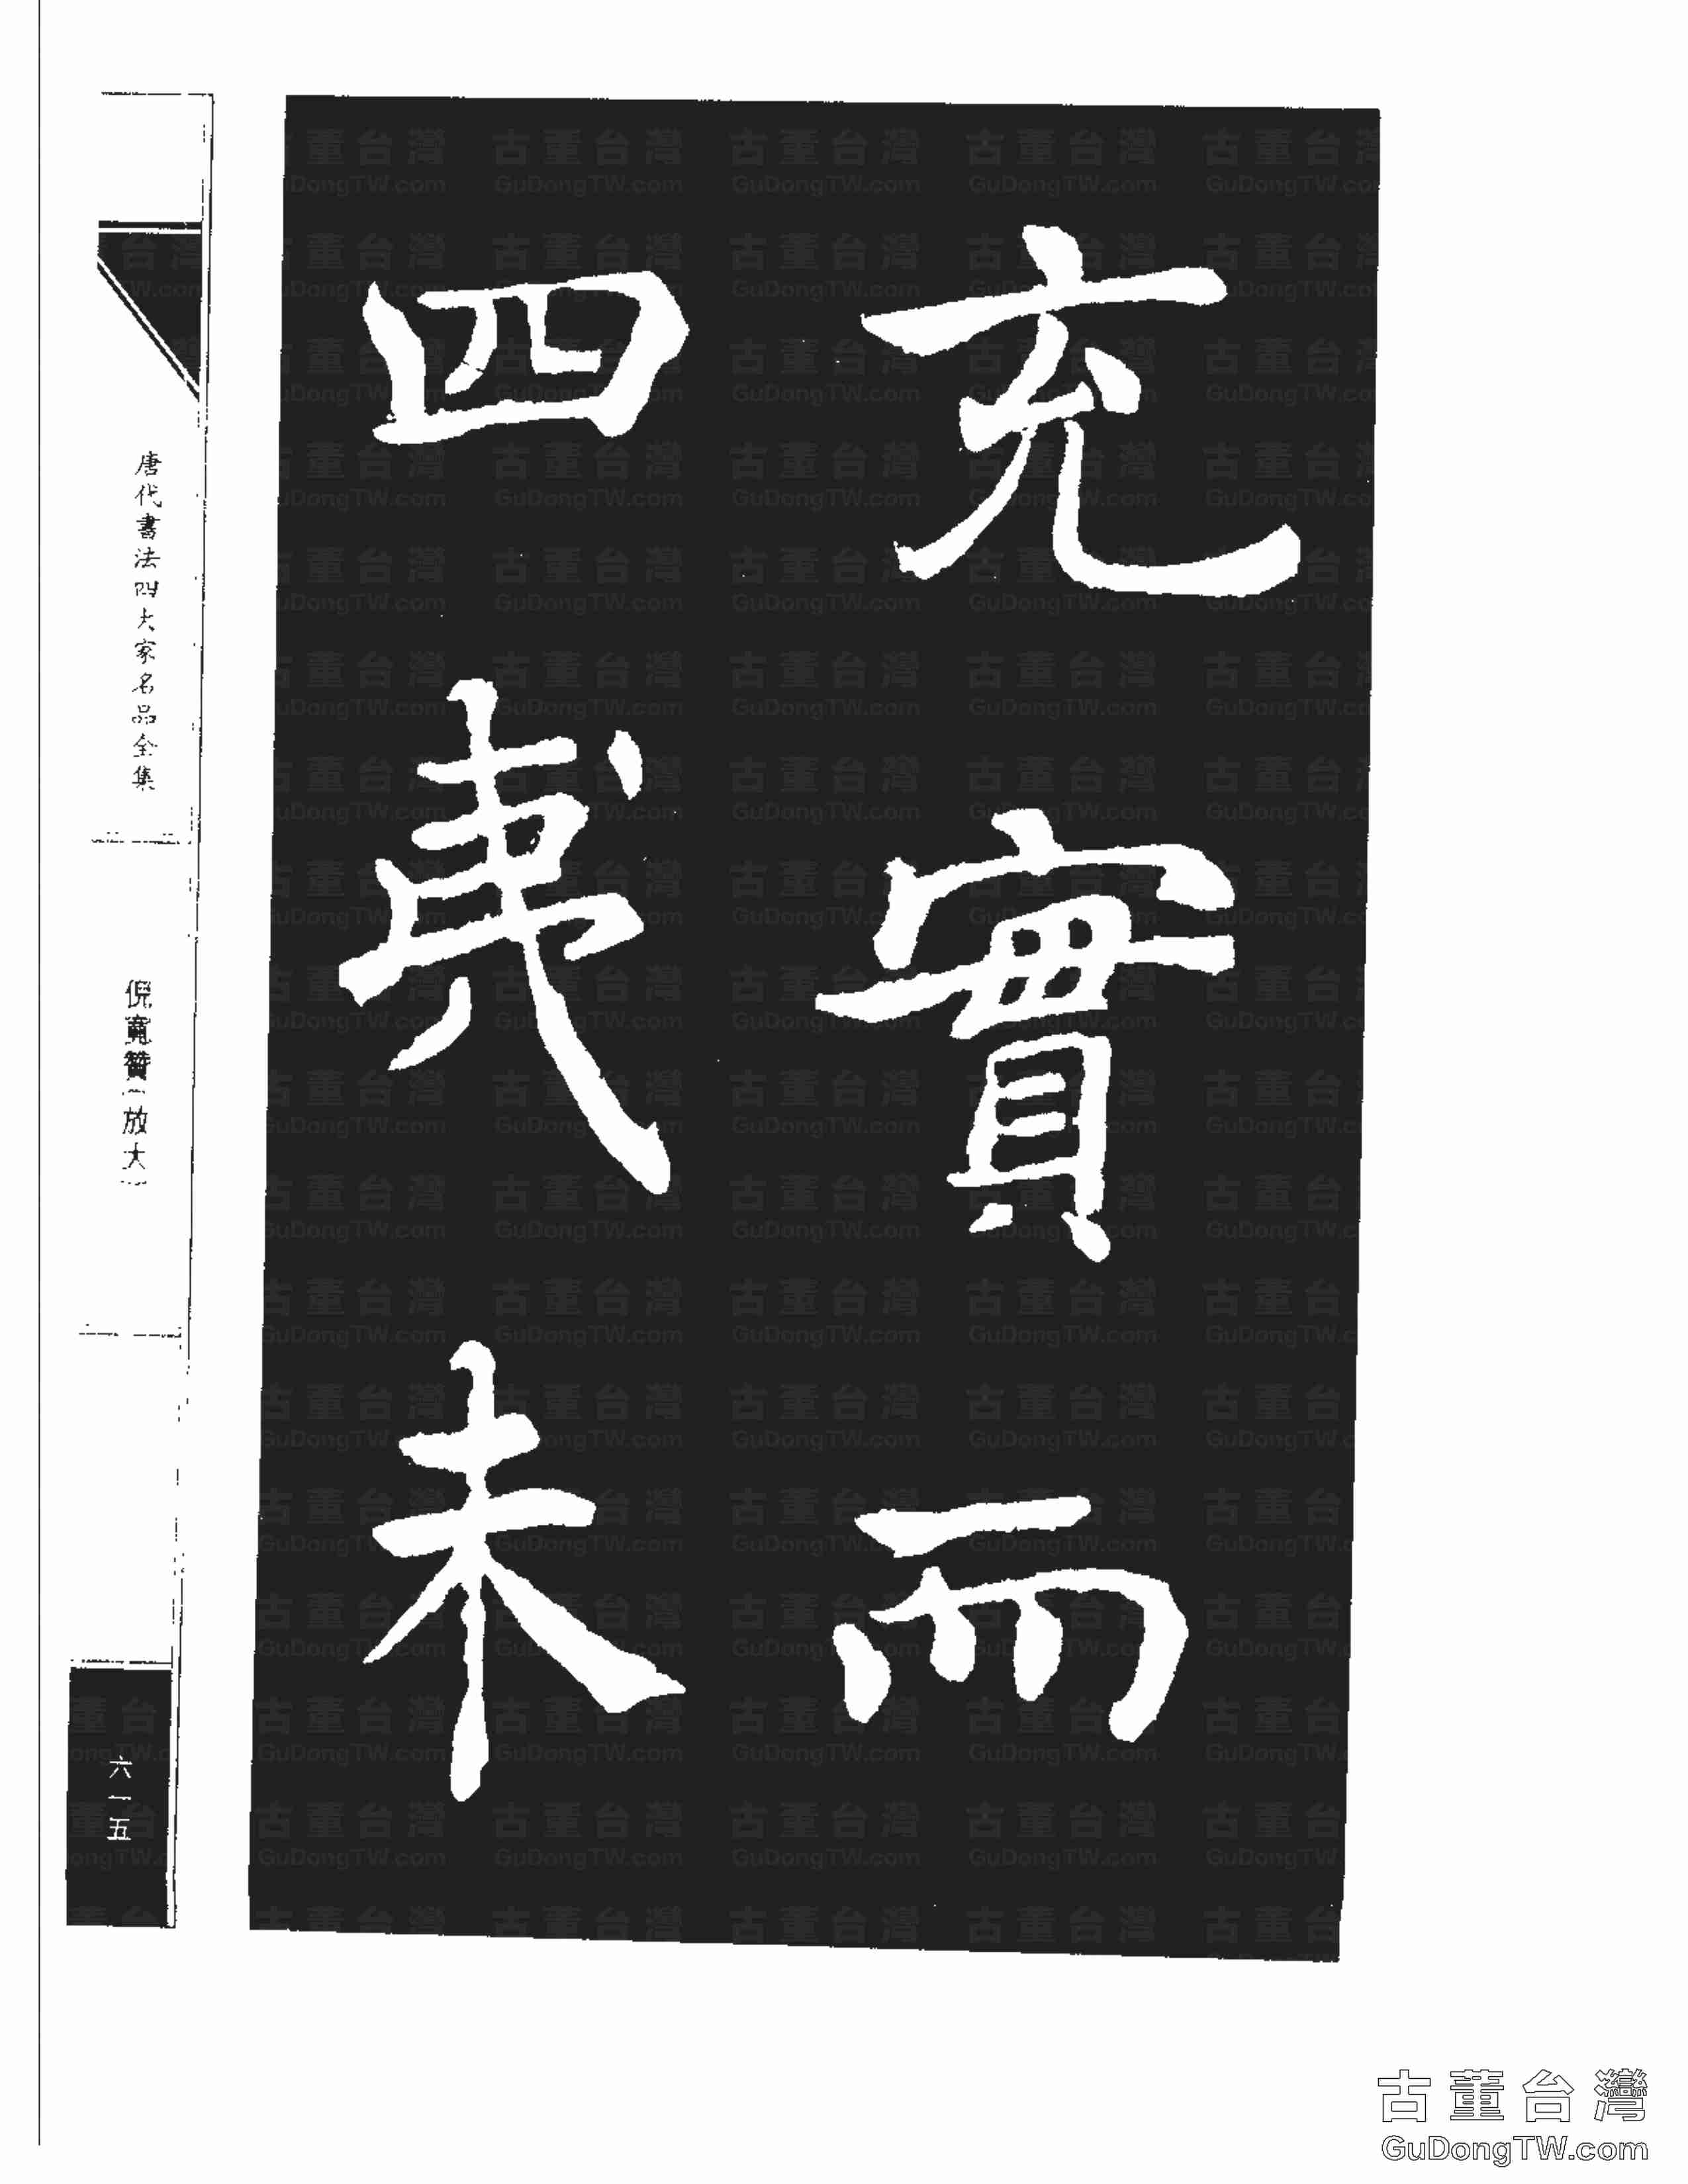 充實而
四夷未
唐代書法四大家名品全集
倪寬贊(放大)
六一五
古董台灣
GuDongTW.com